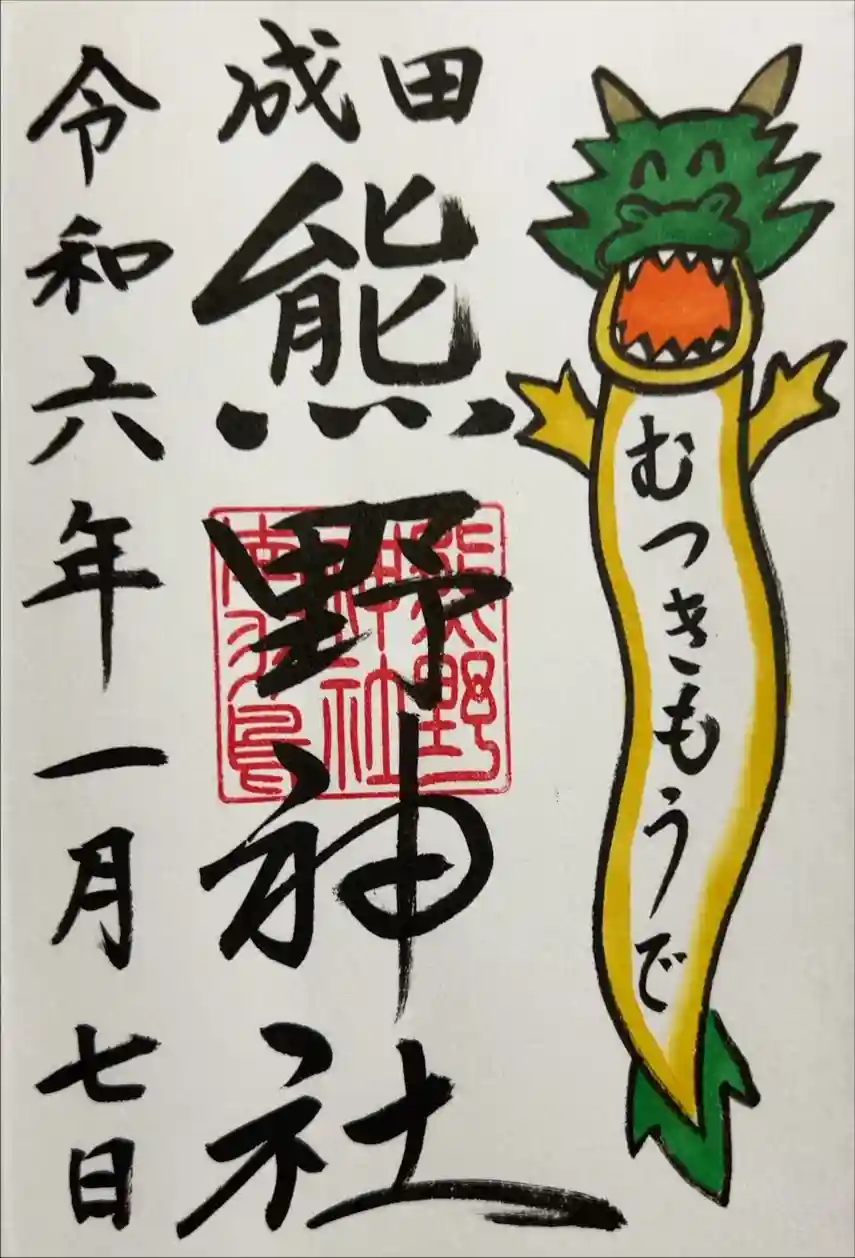 むつきもうで
成田
熊野神社
熊野
神社
令和六年一月七日